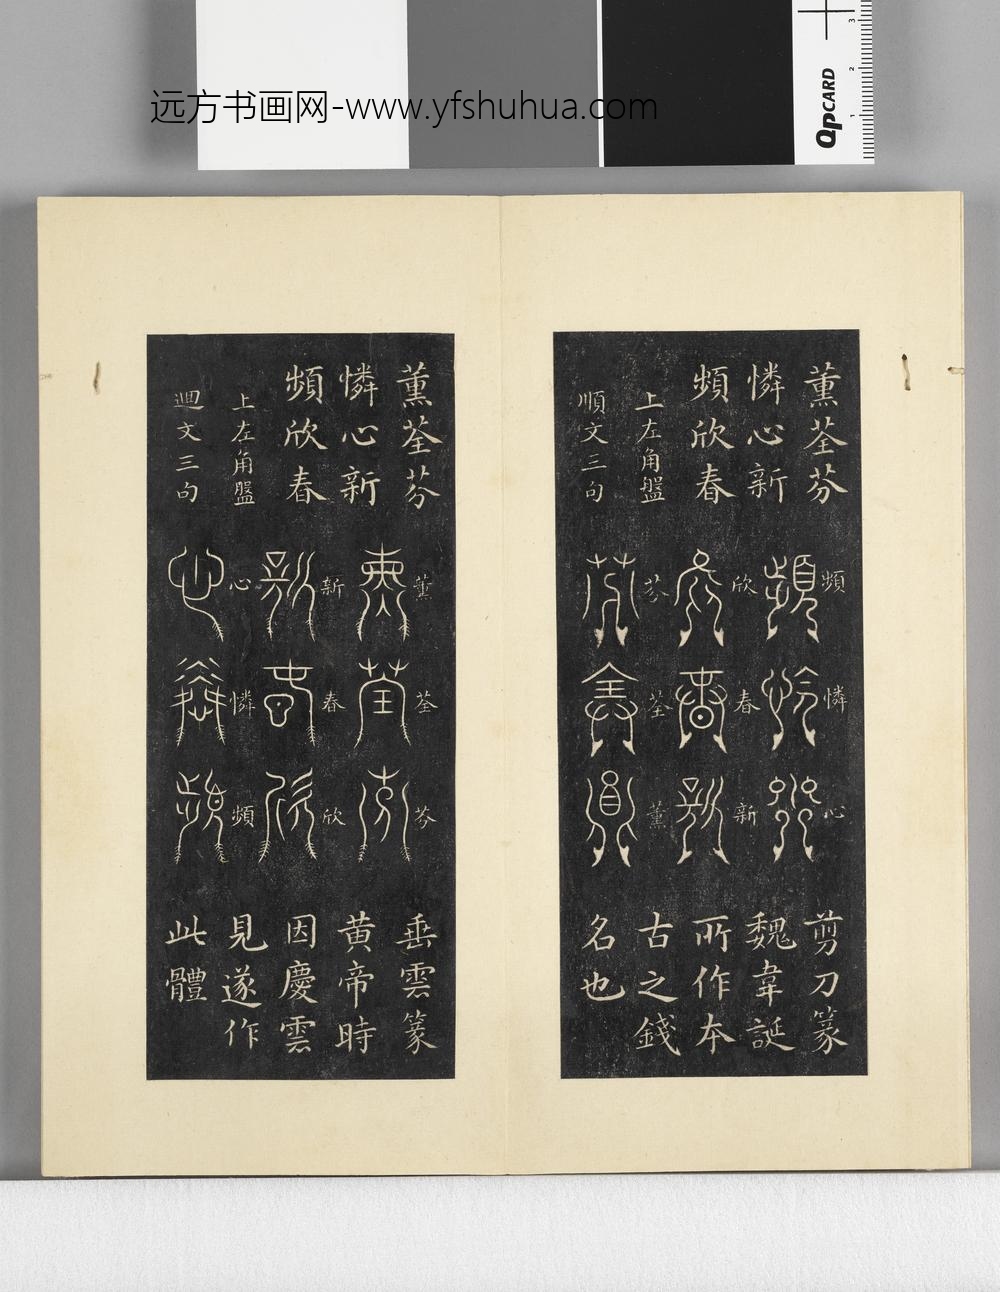 远方书画网-www.yfshuhua.com
QpCARD
1
2
3
薰荃芬
憐心新
頻欣春
上左角盤
順文三句
頻
憐
心
欣
春
新
芬
荃
薰
剪刀篆
魏韋誕
所作本
古之錢
名也
薰荃芬
憐心新
頻欣春
上左角盤
迴文三句
薰
荃
芬
新
春
欣
心
憐
頻
垂雲篆
黄帝時
因慶雲
見遂作
此體